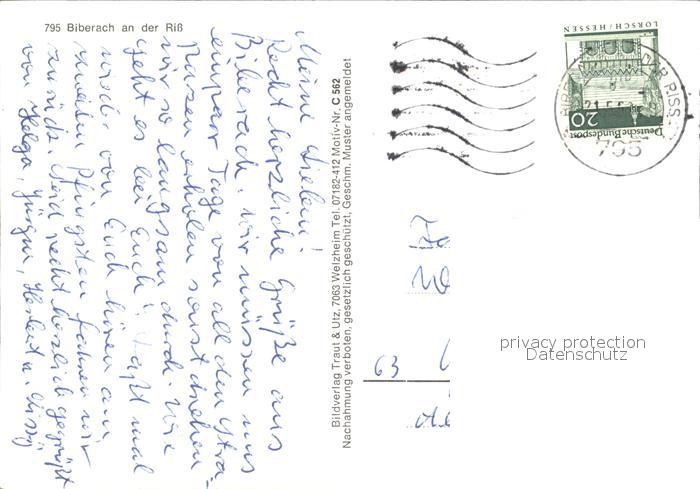 795 Biberach an der Riß
Meine Lieben!
Recht herzliche Grüße aus
Biberach. Wir müssen uns
ein paar Tage von all den Stra-
pazen erholen sonst drehen
wir so langsam durch. Wie
geht es bei Euch? Laßt mal
wieder von Euch hören am
zweiten Pfingsten fahren wir
zurück. Seid recht herzlich gegrüßt
von Helga, Jürgen, Herbert u. Sissy
Bildverlag Traut & Utz, 7063 Welzheim Tel. 07182-412 Motiv-Nr. C 562
Nachahmung verboten, gesetzlich geschützt, Geschm. Muster angemeldet
LORSCH/HESSEN
Deutsche Bundespost
20
RISS
21.5.
795
63
privacy protection
Datenschutz